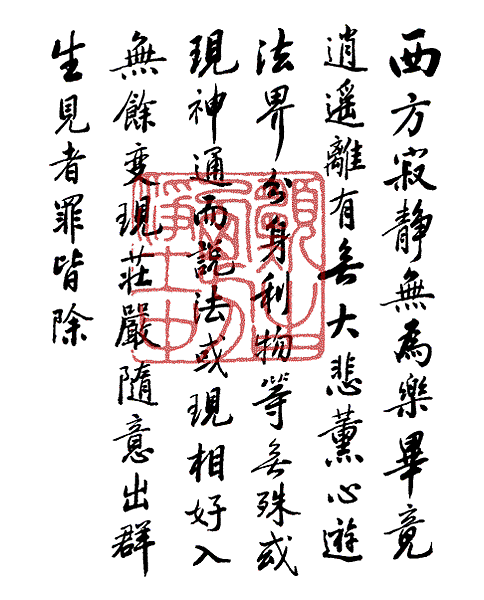 西方寂靜無為樂畢竟
逍遙離有無大悲薰心遊
法界分身利物等無殊或
現神通而說法或現相好入
無餘變現莊嚴隨意出群
生見者罪皆除
願生
西方
淨土中